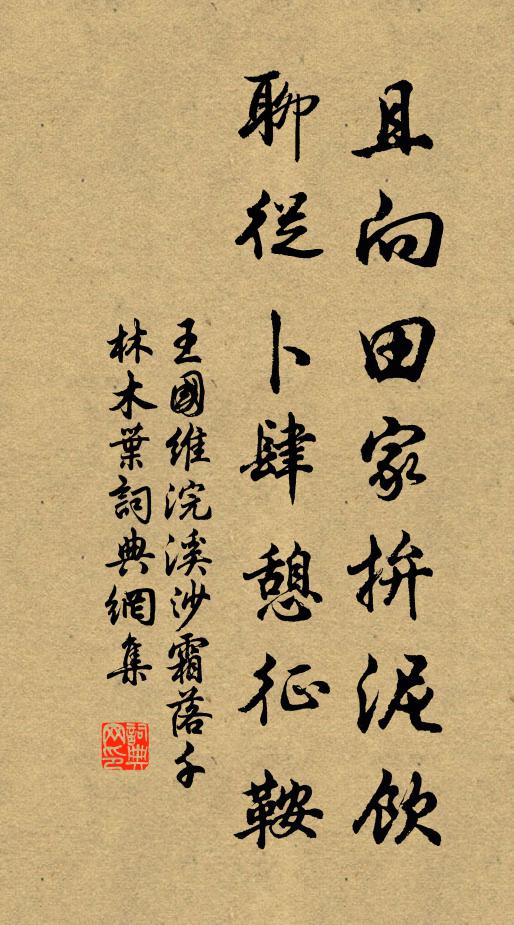 且向田家拚泥飲
聊從卜肆憩征鞍
王國維浣溪沙霜落千
林木葉詞典網集
詞典網印